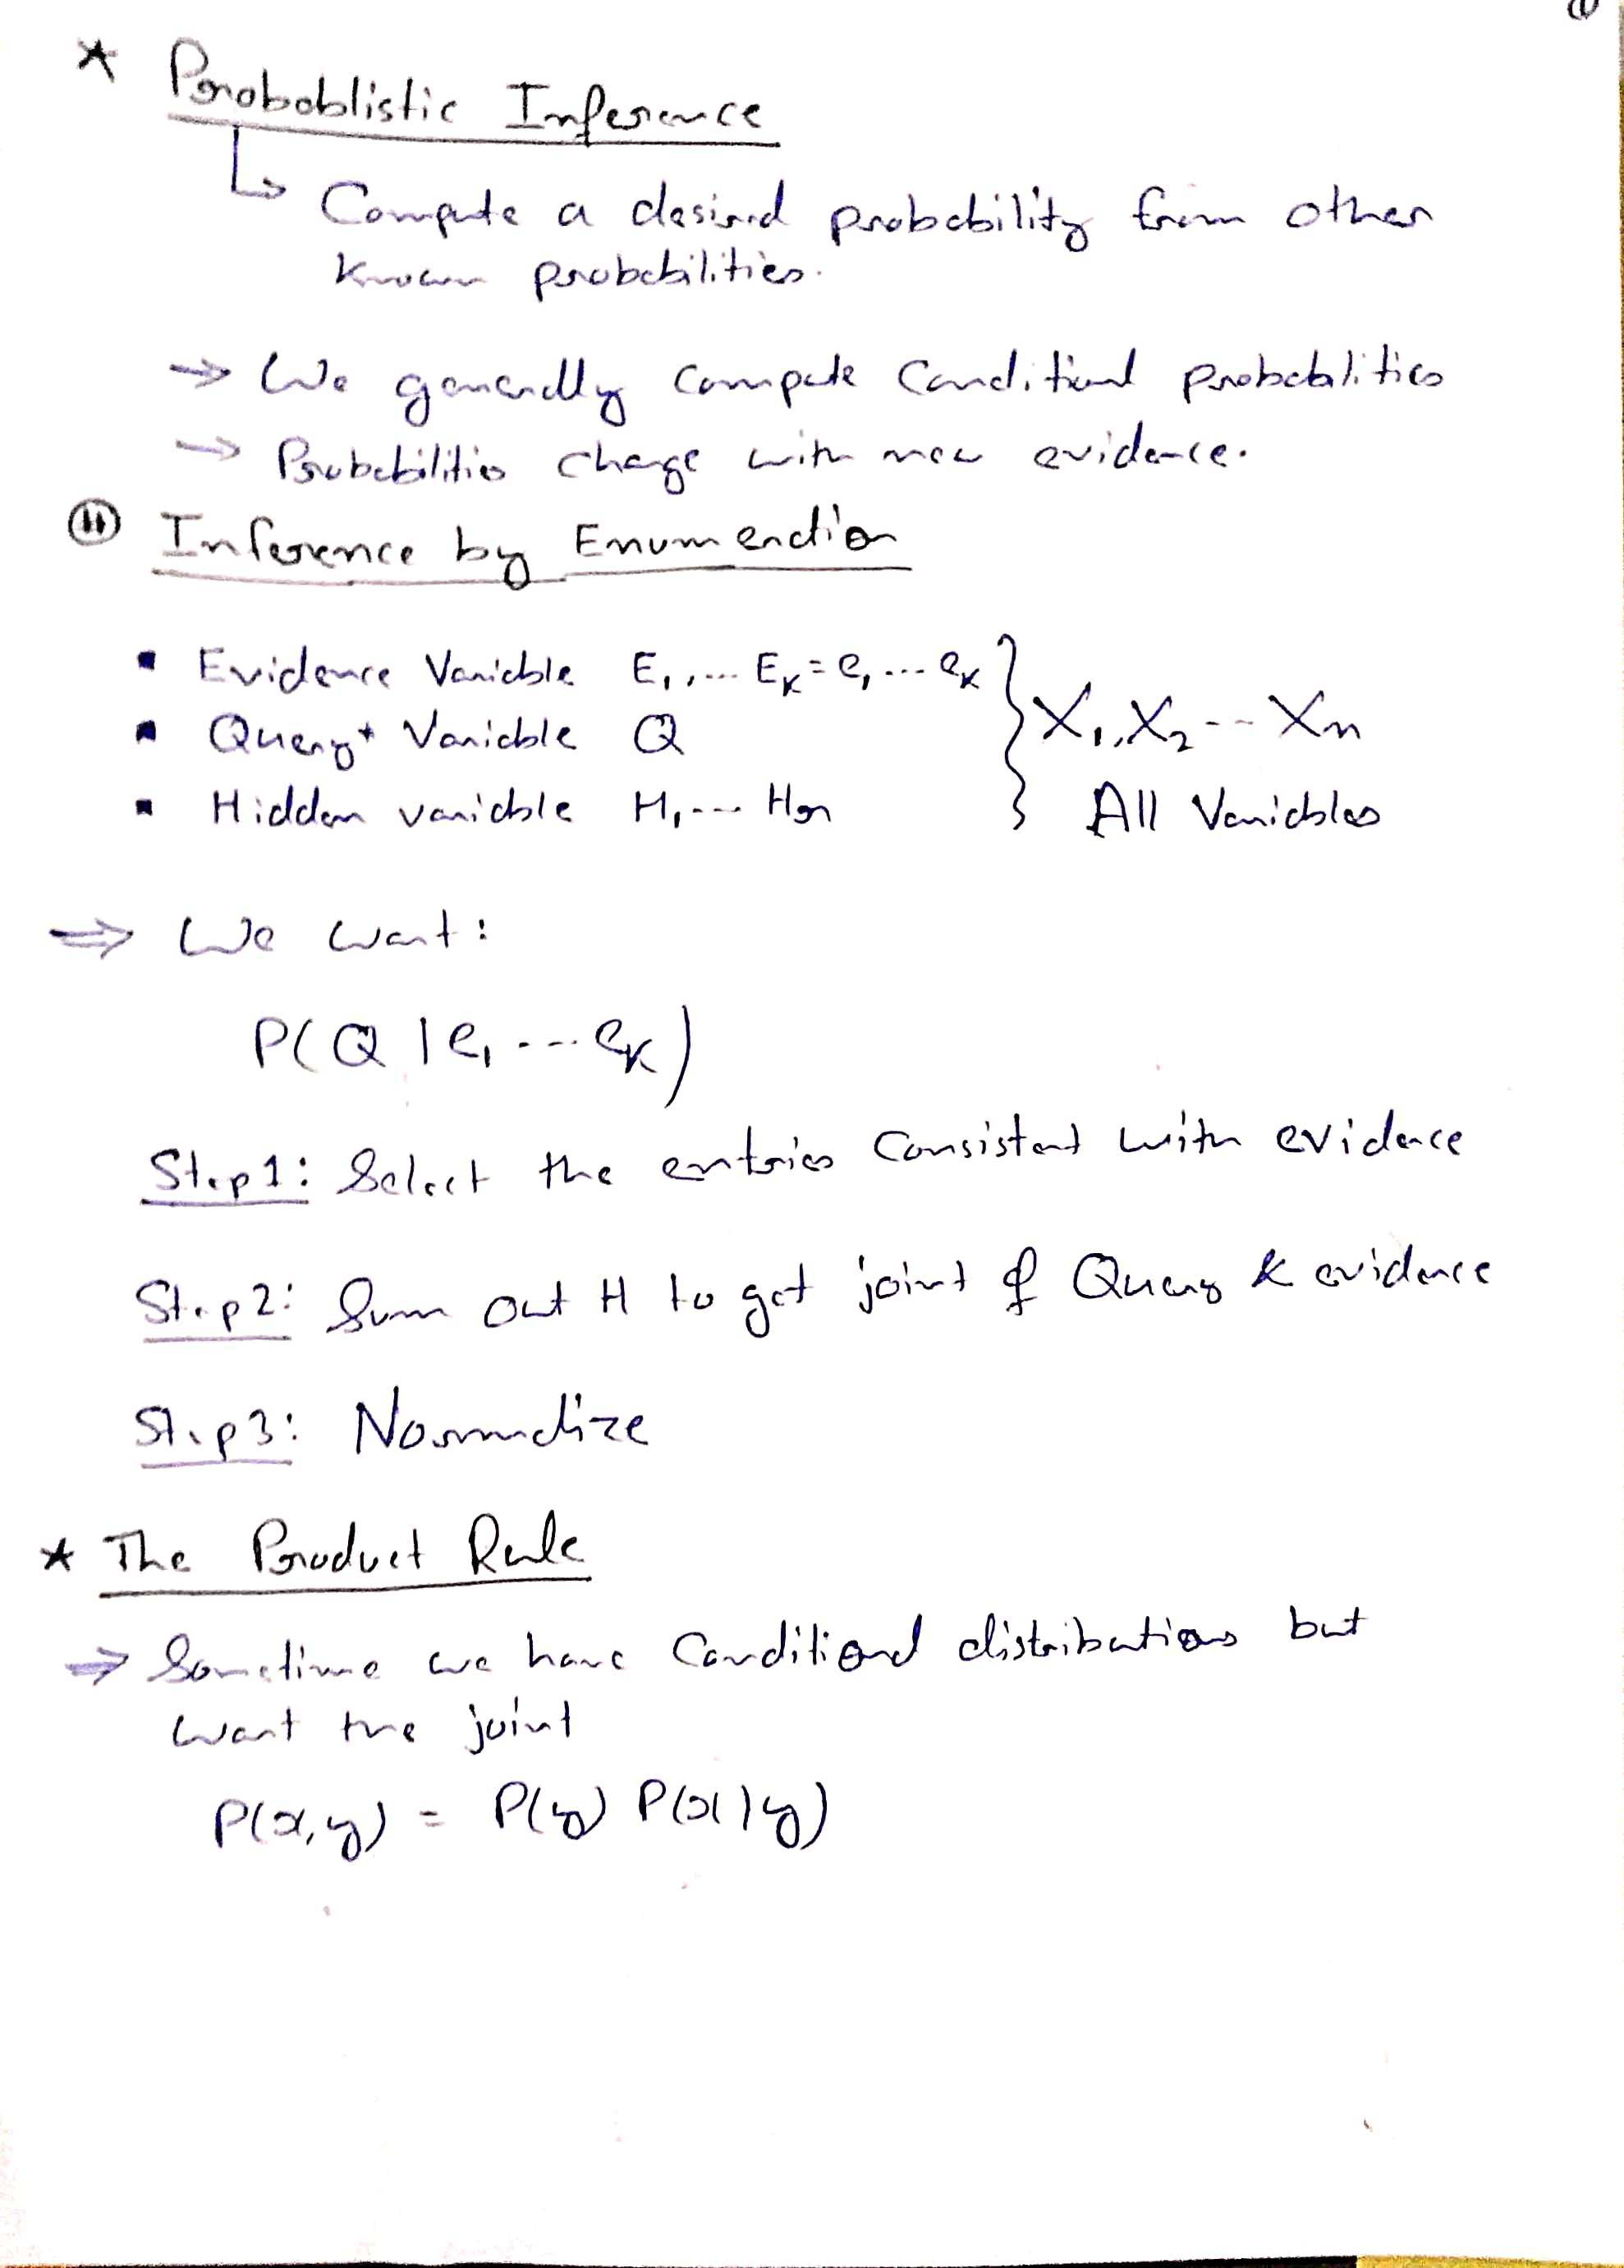 * Proboblistic Inference
↳ Compute a desired probability from other
known probabilities.
→ We generally compute conditional probabilities
→ Probabilities change with new evidence.
Inference by Enumeration
▪ Evidence Variable E₁,... Eₖ = e₁ ... eₖ } X₁, X₂ -- Xₙ
▪ Query* Variable Q
▪ Hidden variable H₁... Hₙ All Variables
⇒ We want:
P(Q | e₁ ... eₖ)
Step1: Select the entries consistent with evidence
Step2: Sum out H to get joint of Query & evidence
Step3: Normalize
* The Product Rule
⇒ Sometime we have Conditional distributions but
want the joint
P(x,y) = P(y) P(x|y)